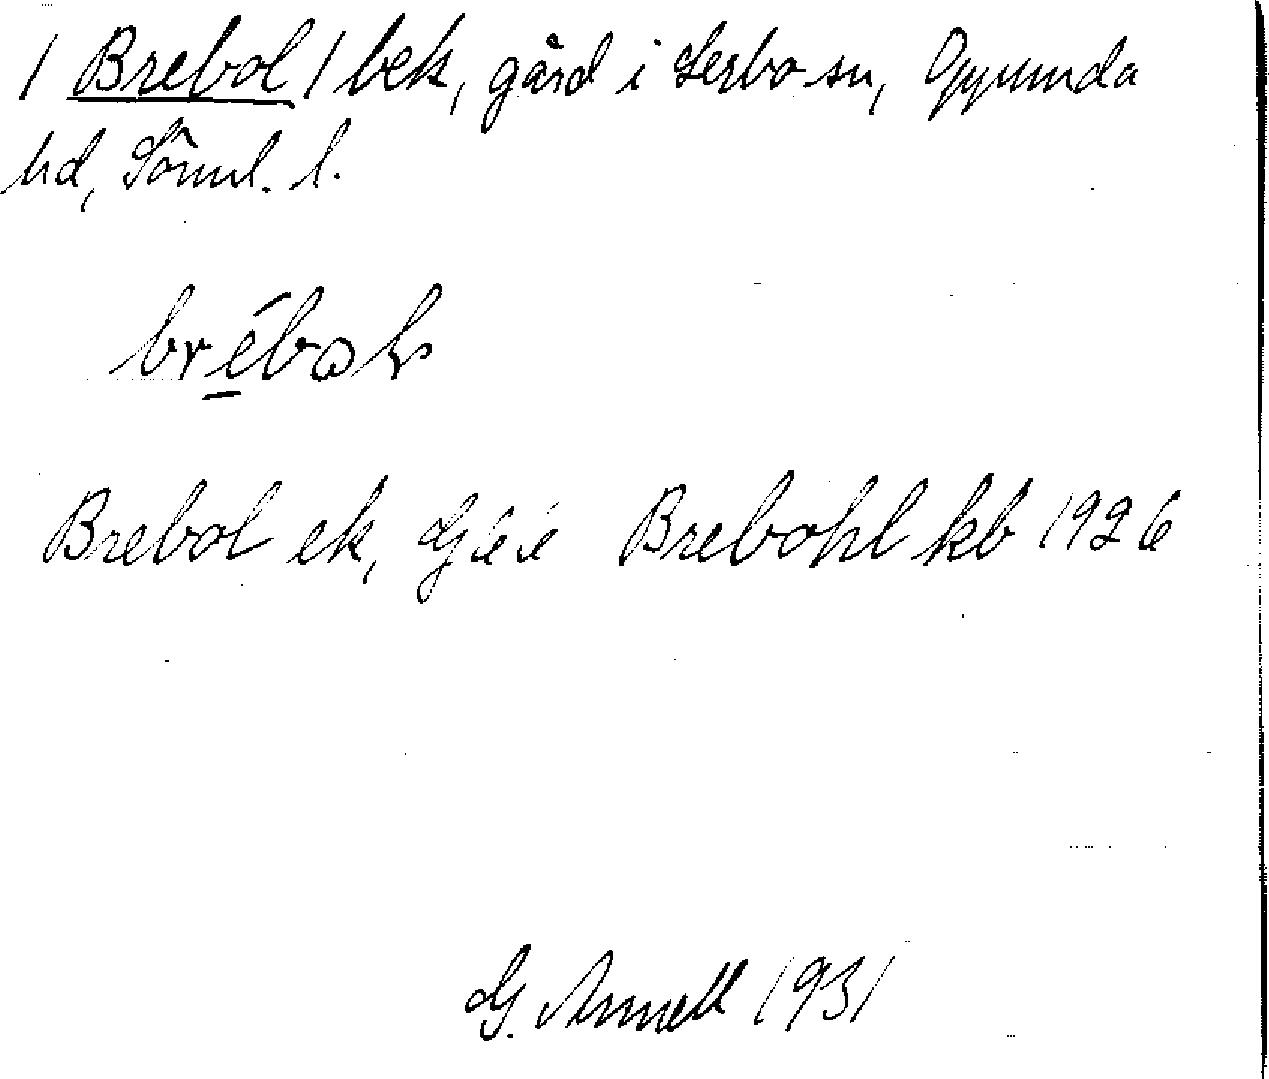 / Brebol / bek, gård i Lerbo sn, Oppunda
hd, Söml. l.
brébol
Brebol ek, Brebohl kb 1926
G. Arnell 1931